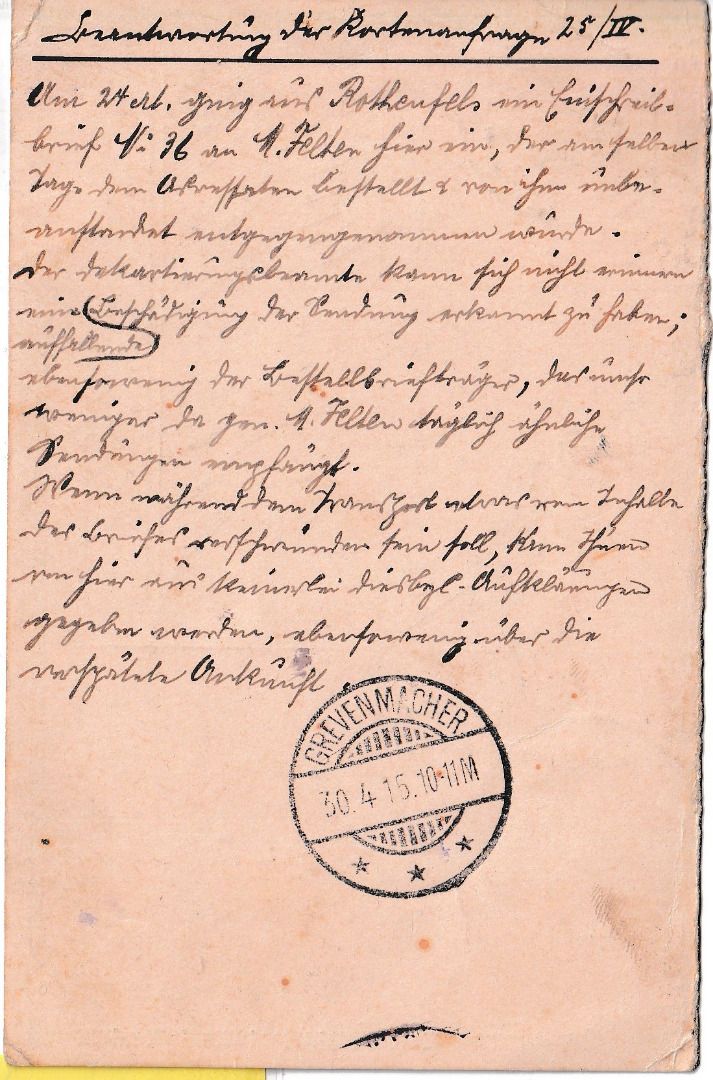 Beantwortung der Kartenanfrage 25/IV.
Am 24 ds. ging aus Rothenfels ein Einschreib-
brief No 36 an M. Felten hier ein, der am selben
Tage dem Adressaten bestellt & von ihm unbe-
anstandet entgegengenommen wurde.
Der dekartierungsbeamte kann sich nicht erinnern
eine Beschädigung der Sendung erkannt zu haben;
auffallende
ebensowenig der Bestellbriefträger, das umso
weniger da gen. M. Felten täglich ähnliche
Sendungen empfängt.
Wenn während dem Transport etwas vom Inhalte
des Briefes verschwunden sein soll, kann Ihnen
von hier aus keinerlei diesbzl. Aufklärungen
gegeben werden, ebensowenig über die
verspätete Ankunft.
GREVENMACHER
30.4 15.10-11M